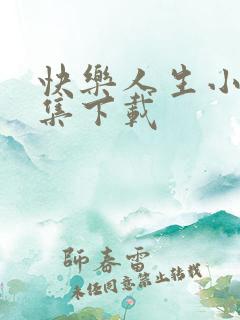 快樂人生小
集下載
師春雷
未经同意禁止转载